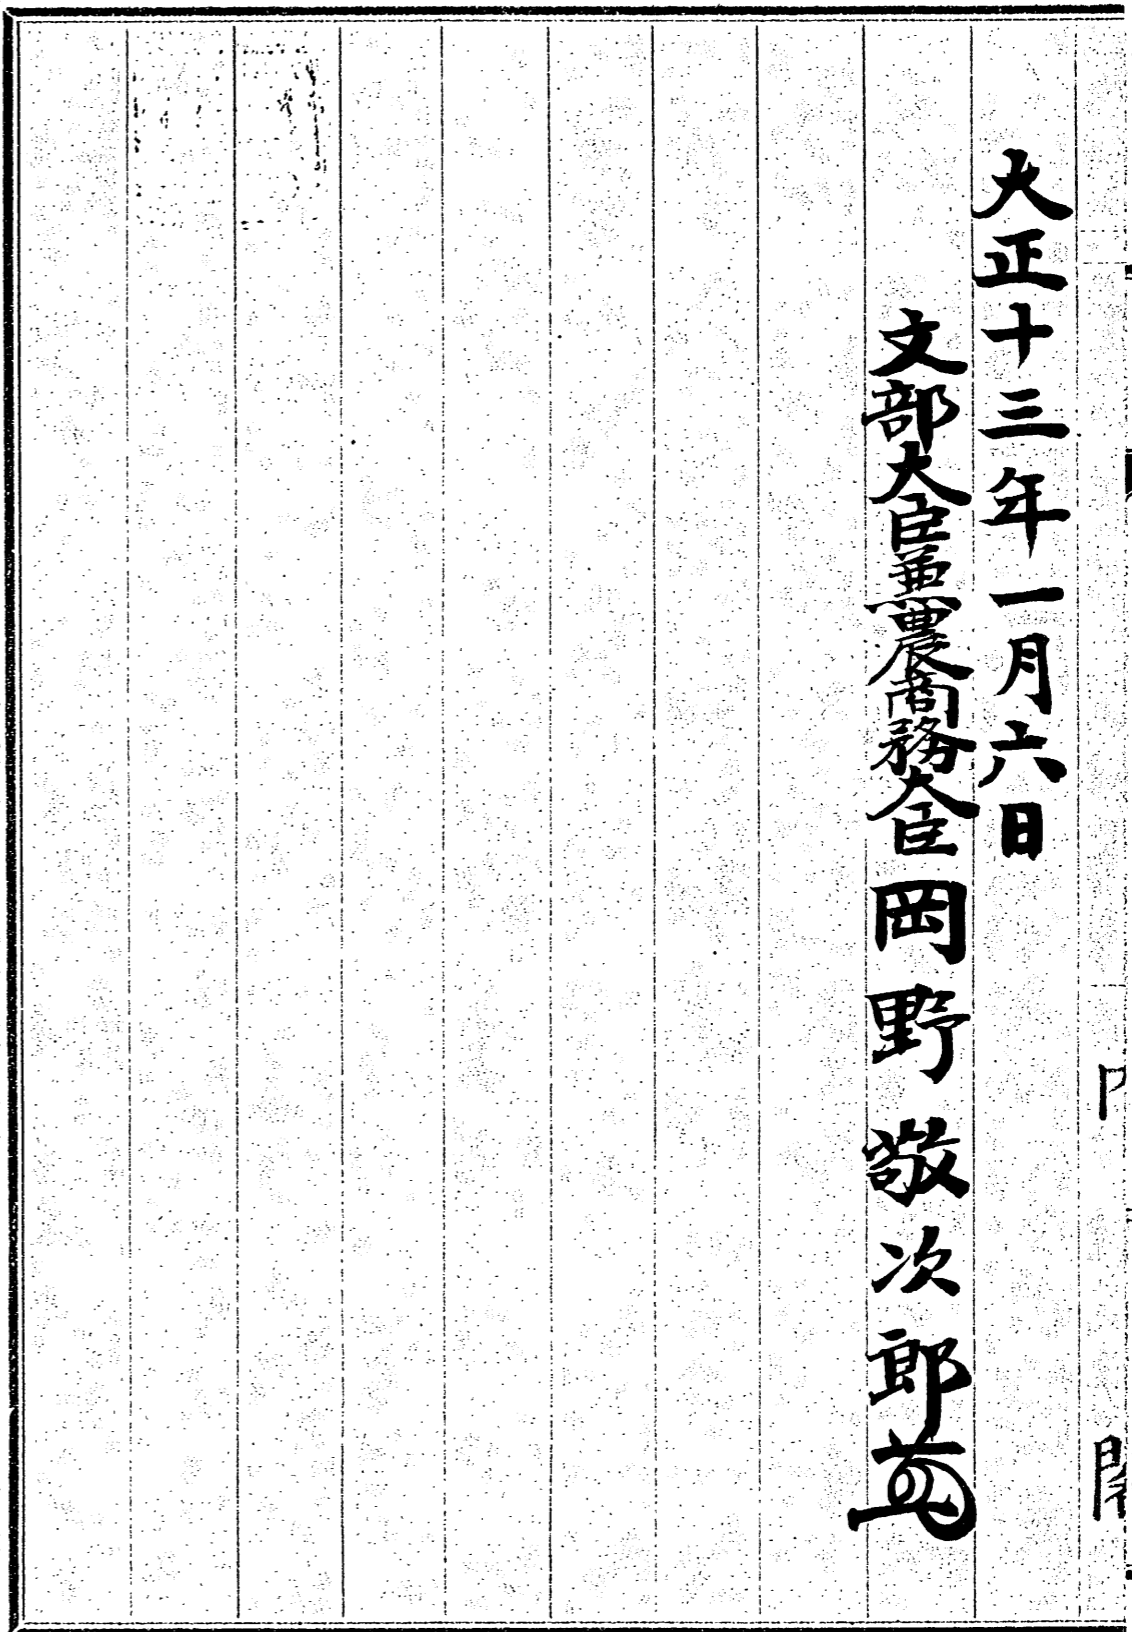 大正十三年一月六日
文部大臣兼農商務大臣岡野敬次郎